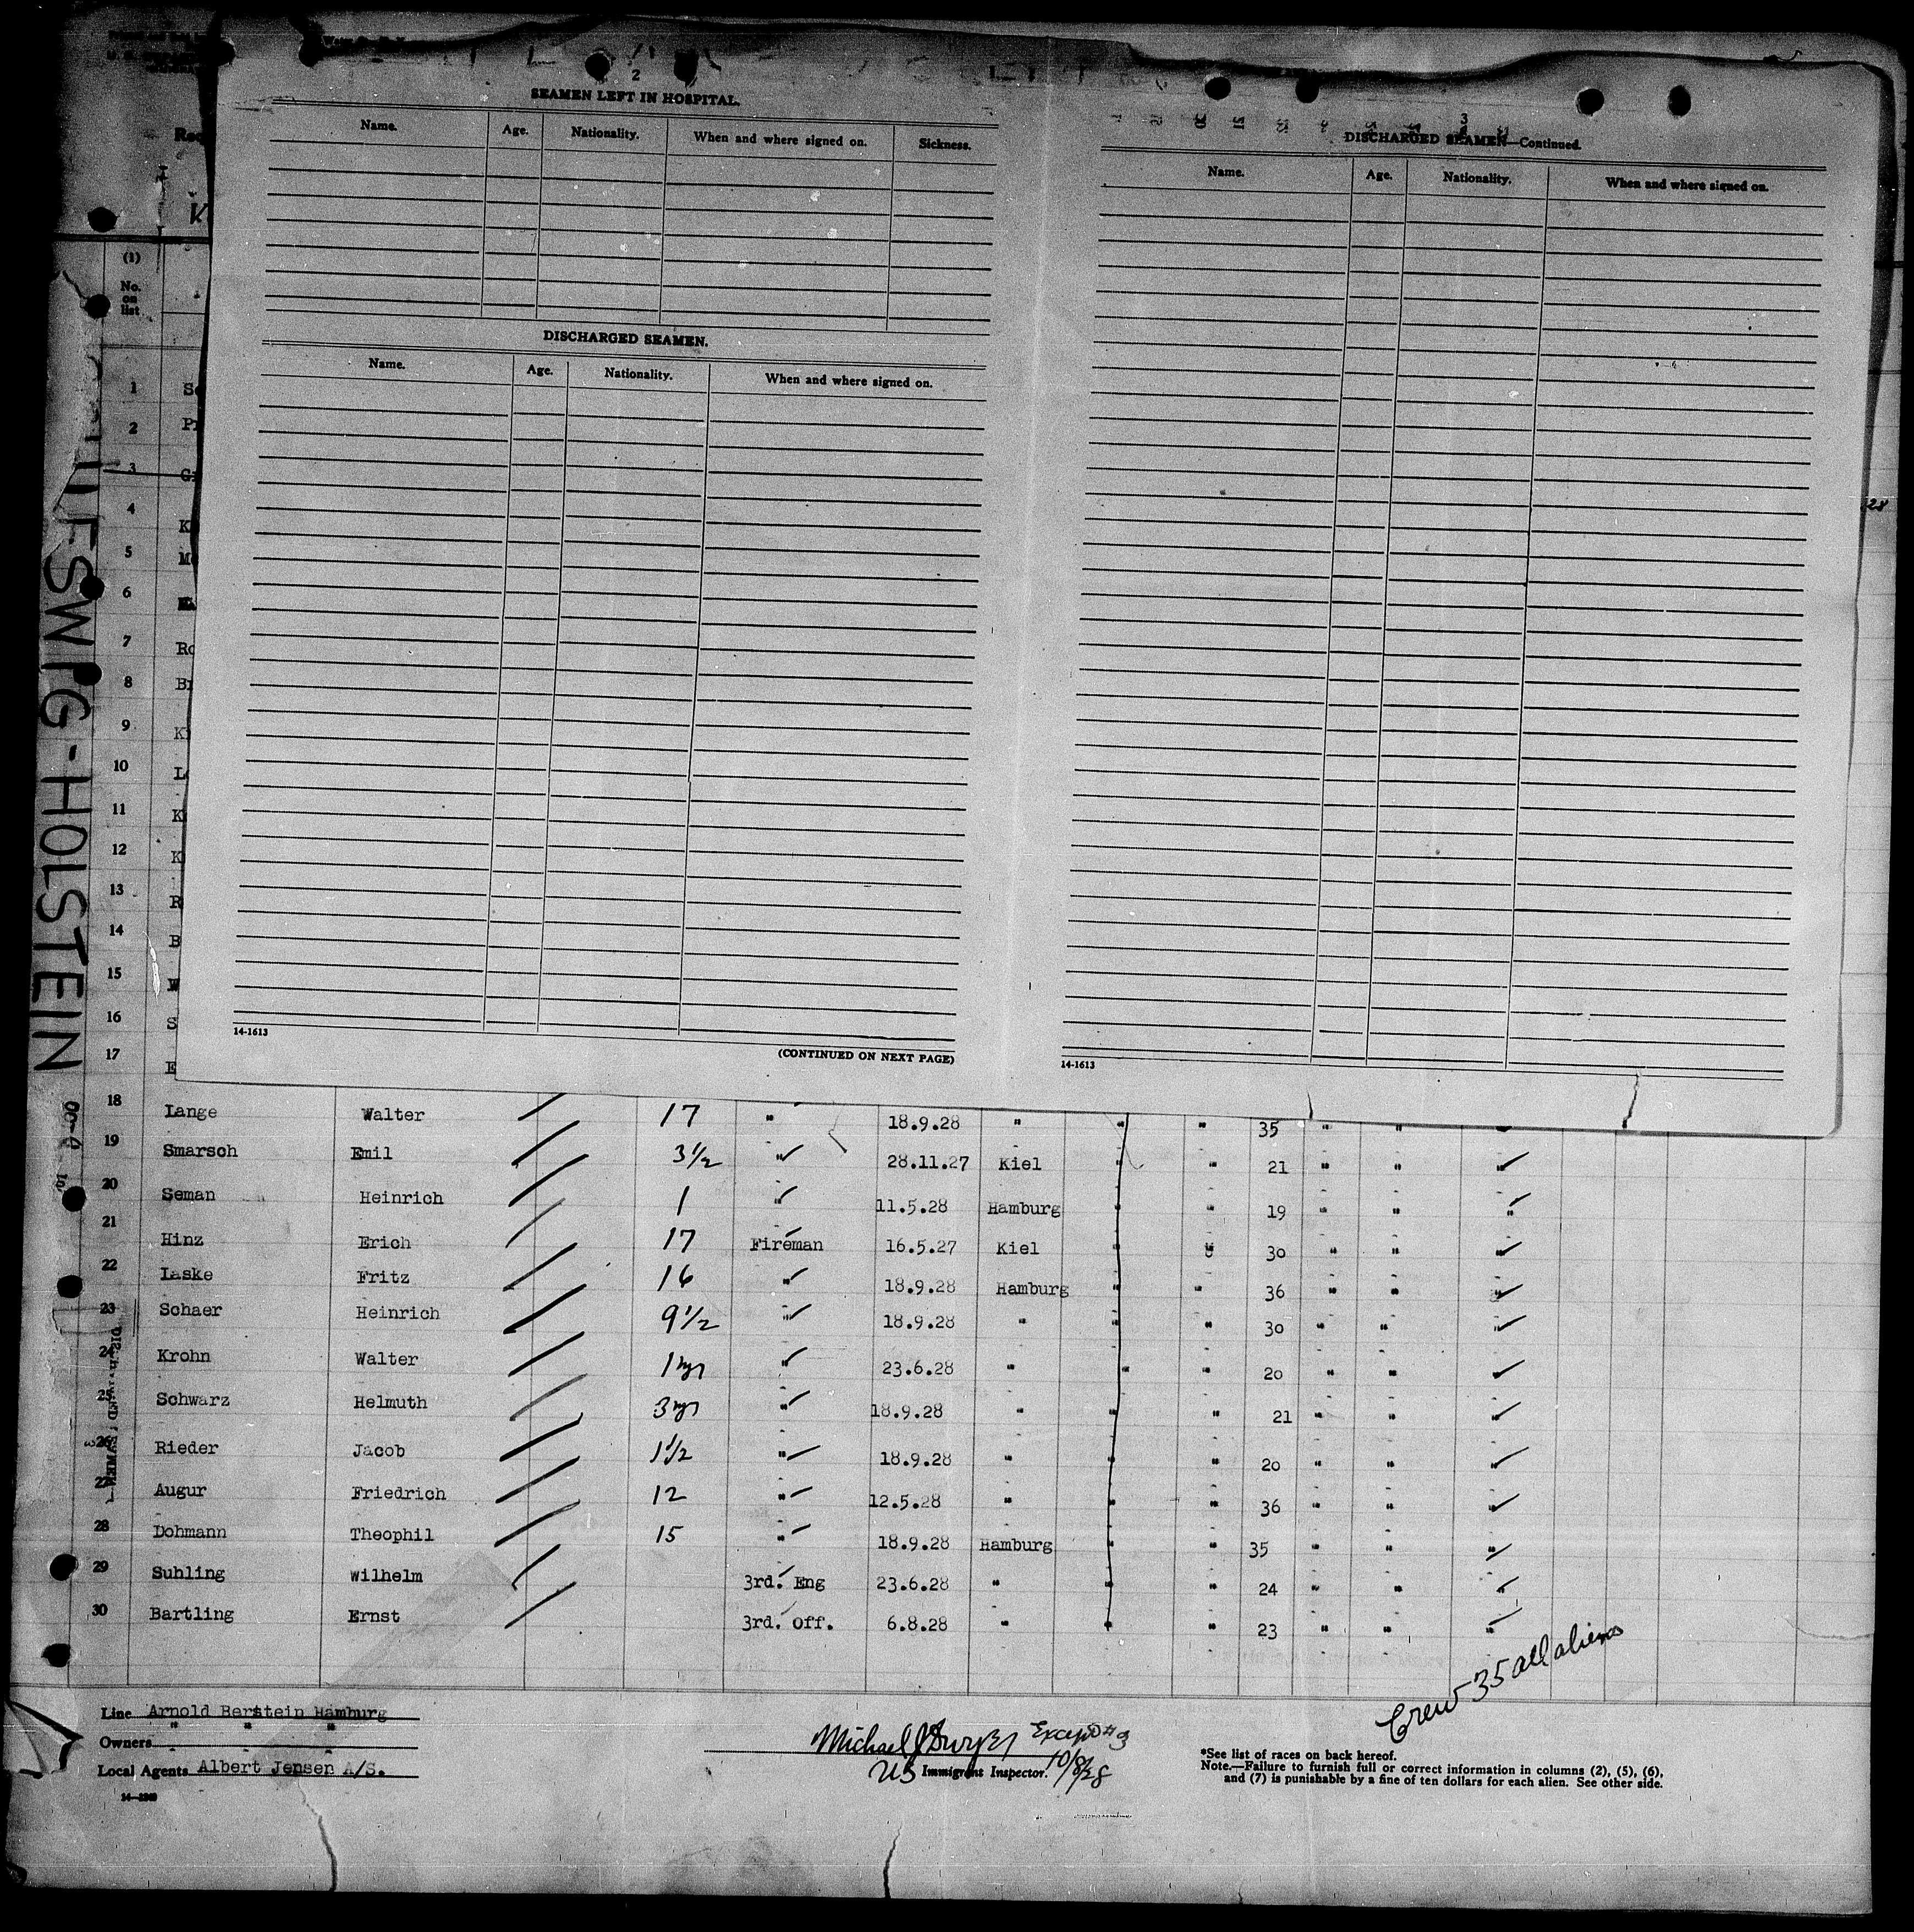 2
SEAMEN LEFT IN HOSPITAL.
Name. Age. Nationality. When and where signed on. Sickness.
DISCHARGED SEAMEN.
Name. Age. Nationality. When and where signed on.
14-1613
(CONTINUED ON NEXT PAGE)
3
DISCHARGED SEAMEN—Continued.
Name. Age. Nationality. When and where signed on.
14-1613
(1)
No.
on
list
1
2
3
4
5
6
7
8
9
10
11
12
13
14
15
16
17
18 Lange Walter 17 " 18.9.28 " " " 35 " "
19 Smarsch Emil 3½ " 28.11.27 Kiel " " 21 " " "
20 Seman Heinrich 1 " 11.5.28 Hamburg " " 19 " " "
21 Hinz Erich 17 Fireman 16.5.27 Kiel " " 30 " " "
22 Laske Fritz 16 " 18.9.28 Hamburg " " 36 " " "
23 Schaer Heinrich 9½ " 18.9.28 " " " 30 " " "
24 Krohn Walter 1 yr " 23.6.28 " " " 20 " " "
25 Schwarz Helmuth 3 yr " 18.9.28 " " " 21 " " "
26 Rieder Jacob 1½ " 18.9.28 " " " 20 " " "
27 Augur Friedrich 12 " 12.5.28 " " " 36 " " "
28 Dohmann Theophil 15 " 18.9.28 Hamburg " " 35 " " "
29 Suhling Wilhelm 3rd. Eng 23.6.28 " " " 24 " " "
30 Bartling Ernst 3rd. Off. 6.8.28 " " " 23 " " "
Crew 35 all aliens
Line Arnold Berstein Hamburg
Owners " " "
Local Agents Albert Jensen A/S.
Michael J Dwyer Except #3
US Immigrant Inspector. 10/8/28
*See list of races on back hereof.
Note.—Failure to furnish full or correct information in columns (2), (5), (6),
and (7) is punishable by a fine of ten dollars for each alien. See other side.
HOLSTEIN